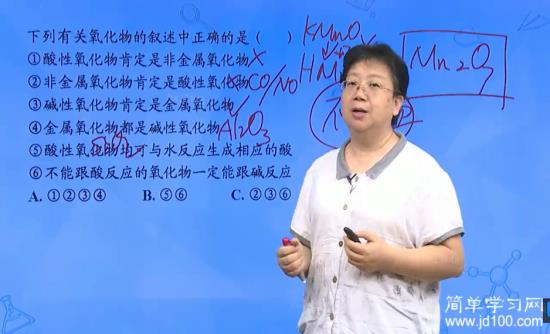 下列有关氧化物的叙述中正确的是（ ）
①酸性氧化物肯定是非金属氧化物
②非金属氧化物肯定是酸性氧化物
CO/NO
③碱性氧化物肯定是金属氧化物
④金属氧化物都是碱性氧化物
Al2O3
⑤酸性氧化物均可与水反应生成相应的酸
⑥不能跟酸反应的氧化物一定能跟碱反应
A. ①②③④ B. ⑤⑥ C. ②③⑥
KMnO4
Mn2O7
简单学习网
www.jd100.com